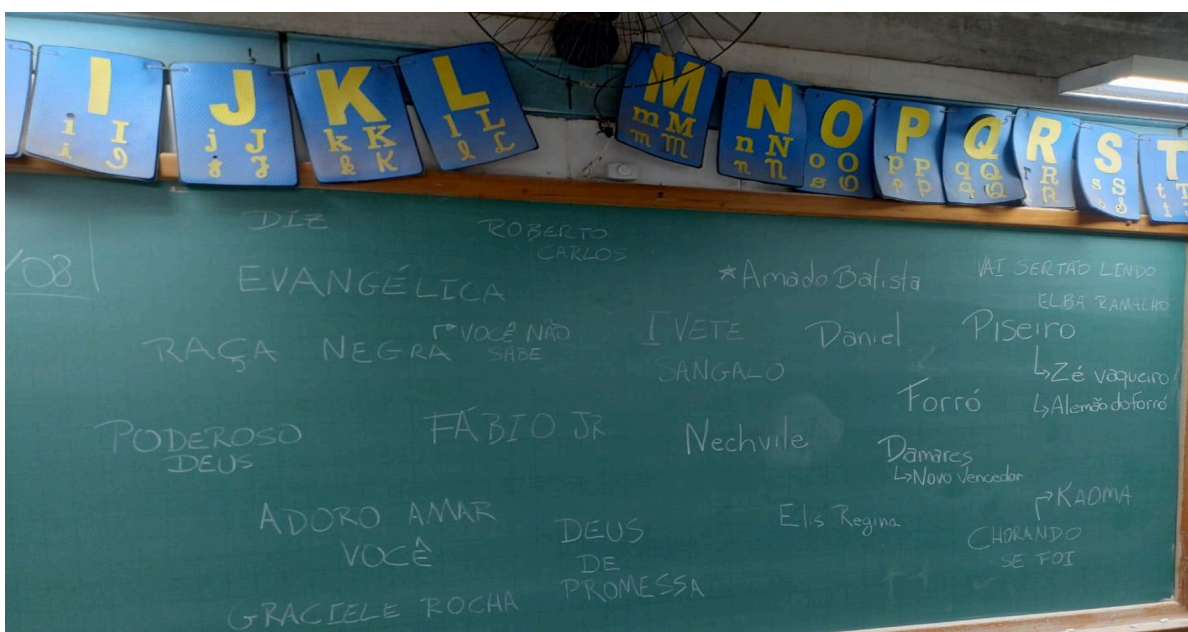 I
i I
i I
J
j J
j J
K
k K
k K
L
l L
l L
M
m M
m M
N
n N
n N
O
o O
o O
P
p P
p P
Q
q Q
q Q
R
r R
R
S
s S
s S
T
t T
t
/08
DIZ
ROBERTO
CARLOS
EVANGÉLICA
*Amado Batista
VAI SERTÃO LINDO
ELBA RAMALHO
RAÇA NEGRA
VOCÊ NÃO
SABE
IVETE
SANGALO
Daniel
Piseiro
Zé vaqueiro
Alemão do forró
Forró
PODEROSO
DEUS
FÁBIO JR
Nechvile
Damares
Novo Vencedor
ADORO AMAR
VOCÊ
DEUS
DE
PROMESSA
Elis Regina
KAOMA
CHORANDO
SE FOI
GRACIELE ROCHA